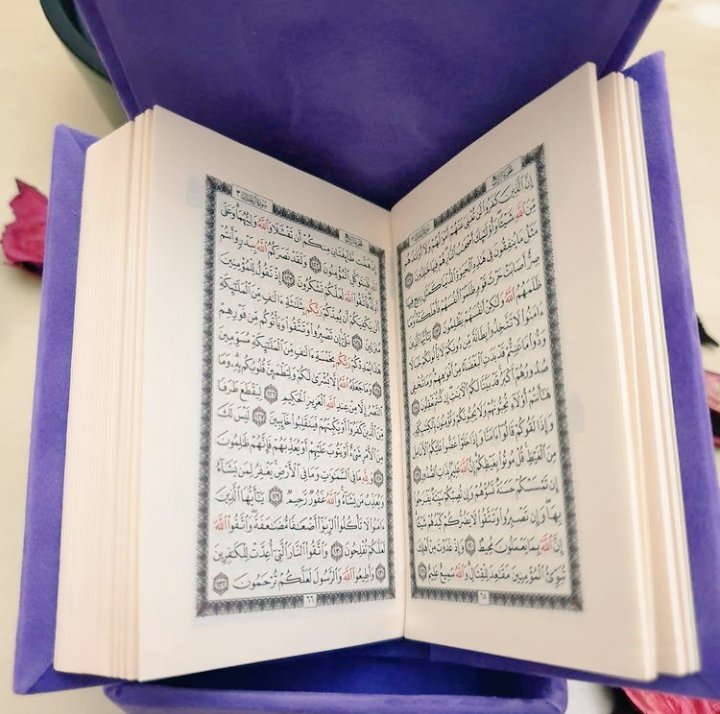 الجُزْءُ الرَّابِعُ
إِنَّ ٱلَّذِينَ كَفَرُوا۟ لَن تُغْنِىَ عَنْهُمْ أَمْوَٰلُهُمْ وَلَآ أَوْلَٰدُهُم
مِّنَ ٱللَّهِ شَيْـًٔا وَأُو۟لَٰٓئِكَ أَصْحَٰبُ ٱلنَّارِ هُمْ فِيهَا خَٰلِدُونَ ١١٦
مَثَلُ مَا يُنفِقُونَ فِى هَٰذِهِ ٱلْحَيَوٰةِ ٱلدُّنْيَا كَمَثَلِ رِيحٍ فِيهَا
صِرٌّ أَصَابَتْ حَرْثَ قَوْمٍ ظَلَمُوٓا۟ أَنفُسَهُمْ فَأَهْلَكَتْهُ وَمَا
ظَلَمَهُمُ ٱللَّهُ وَلَٰكِنْ أَنفُسَهُمْ يَظْلِمُونَ ١١٧ يَٰٓأَيُّهَا ٱلَّذِينَ
ءَامَنُوا۟ لَا تَتَّخِذُوا۟ بِطَانَةً مِّن دُونِكُمْ لَا يَأْلُونَكُمْ خَبَالًا
وَدُّوا۟ مَا عَنِتُّمْ قَدْ بَدَتِ ٱلْبَغْضَآءُ مِنْ أَفْوَٰهِهِمْ وَمَا تُخْفِى
صُدُورُهُمْ أَكْبَرُ قَدْ بَيَّنَّا لَكُمُ ٱلْءَايَٰتِ إِن كُنتُمْ تَعْقِلُونَ ١١٨
هَٰٓأَنتُمْ أُو۟لَآءِ تُحِبُّونَهُمْ وَلَا يُحِبُّونَكُمْ وَتُؤْمِنُونَ بِٱلْكِتَٰبِ كُلِّهِۦ
وَإِذَا لَقُوكُمْ قَالُوٓا۟ ءَامَنَّا وَإِذَا خَلَوْا۟ عَضُّوا۟ عَلَيْكُمُ ٱلْأَنَامِلَ
مِنَ ٱلْغَيْظِ قُلْ مُوتُوا۟ بِغَيْظِكُمْ إِنَّ ٱللَّهَ عَلِيمٌۢ بِذَاتِ ٱلصُّدُورِ ١١٩
إِن تَمْسَسْكُمْ حَسَنَةٌ تَسُؤْهُمْ وَإِن تُصِبْكُمْ سَيِّئَةٌ يَفْرَحُوا۟
بِهَا وَإِن تَصْبِرُوا۟ وَتَتَّقُوا۟ لَا يَضُرُّكُمْ كَيْدُهُمْ شَيْـًٔا
إِنَّ ٱللَّهَ بِمَا يَعْمَلُونَ مُحِيطٌ ١٢٠ وَإِذْ غَدَوْتَ مِنْ أَهْلِكَ
تُبَوِّئُ ٱلْمُؤْمِنِينَ مَقَٰعِدَ لِلْقِتَالِ وَٱللَّهُ سَمِيعٌ عَلِيمٌ ١٢١
٦٥
الجُزْءُ الرَّابِعُ سُورَةُ آلِ عِمْرَانَ ٣
إِذْ هَمَّت طَّآئِفَتَانِ مِنكُمْ أَن تَفْشَلَا وَٱللَّهُ وَلِيُّهُمَا وَعَلَى
ٱللَّهِ فَلْيَتَوَكَّلِ ٱلْمُؤْمِنُونَ ١٢٢ وَلَقَدْ نَصَرَكُمُ ٱللَّهُ بِبَدْرٍ وَأَنتُمْ
أَذِلَّةٌ فَٱتَّقُوا۟ ٱللَّهَ لَعَلَّكُمْ تَشْكُرُونَ ١٢٣ إِذْ تَقُولُ لِلْمُؤْمِنِينَ
أَلَن يَكْفِيَكُمْ أَن يُمِدَّكُمْ رَبُّكُم بِثَلَٰثَةِ ءَالَٰفٍ مِّنَ ٱلْمَلَٰٓئِكَةِ
مُنزَلِينَ ١٢٤ بَلَىٰٓ إِن تَصْبِرُوا۟ وَتَتَّقُوا۟ وَيَأْتُوكُم مِّن فَوْرِهِمْ
هَٰذَا يُمْدِدْكُمْ رَبُّكُم بِخَمْسَةِ ءَالَٰفٍ مِّنَ ٱلْمَلَٰٓئِكَةِ مُسَوِّمِينَ
١٢٥ وَمَا جَعَلَهُ ٱللَّهُ إِلَّا بُشْرَىٰ لَكُمْ وَلِتَطْمَئِنَّ قُلُوبُكُم بِهِۦ وَمَا
ٱلنَّصْرُ إِلَّا مِنْ عِندِ ٱللَّهِ ٱلْعَزِيزِ ٱلْحَكِيمِ ١٢٦ لِيَقْطَعَ طَرَفًا
مِّنَ ٱلَّذِينَ كَفَرُوٓا۟ أَوْ يَكْبِتَهُمْ فَيَنقَلِبُوا۟ خَآئِبِينَ ١٢٧ لَيْسَ لَكَ
مِنَ ٱلْأَمْرِ شَىْءٌ أَوْ يَتُوبَ عَلَيْهِمْ أَوْ يُعَذِّبَهُمْ فَإِنَّهُمْ ظَٰلِمُونَ
١٢٨ وَلِلَّهِ مَا فِى ٱلسَّمَٰوَٰتِ وَمَا فِى ٱلْأَرْضِ يَغْفِرُ لِمَن يَشَآءُ
وَيُعَذِّبُ مَن يَشَآءُ وَٱللَّهُ غَفُورٌ رَّحِيمٌ ١٢٩ يَٰٓأَيُّهَا ٱلَّذِينَ
ءَامَنُوا۟ لَا تَأْكُلُوا۟ ٱلرِّبَوٰٓا۟ أَضْعَٰفًا مُّضَٰعَفَةً وَٱتَّقُوا۟ ٱللَّهَ
لَعَلَّكُمْ تُفْلِحُونَ ١٣٠ وَٱتَّقُوا۟ ٱلنَّارَ ٱلَّتِىٓ أُعِدَّتْ لِلْكَٰفِرِينَ
١٣١ وَأَطِيعُوا۟ ٱللَّهَ وَٱلرَّسُولَ لَعَلَّكُمْ تُرْحَمُونَ ١٣٢
٦٦